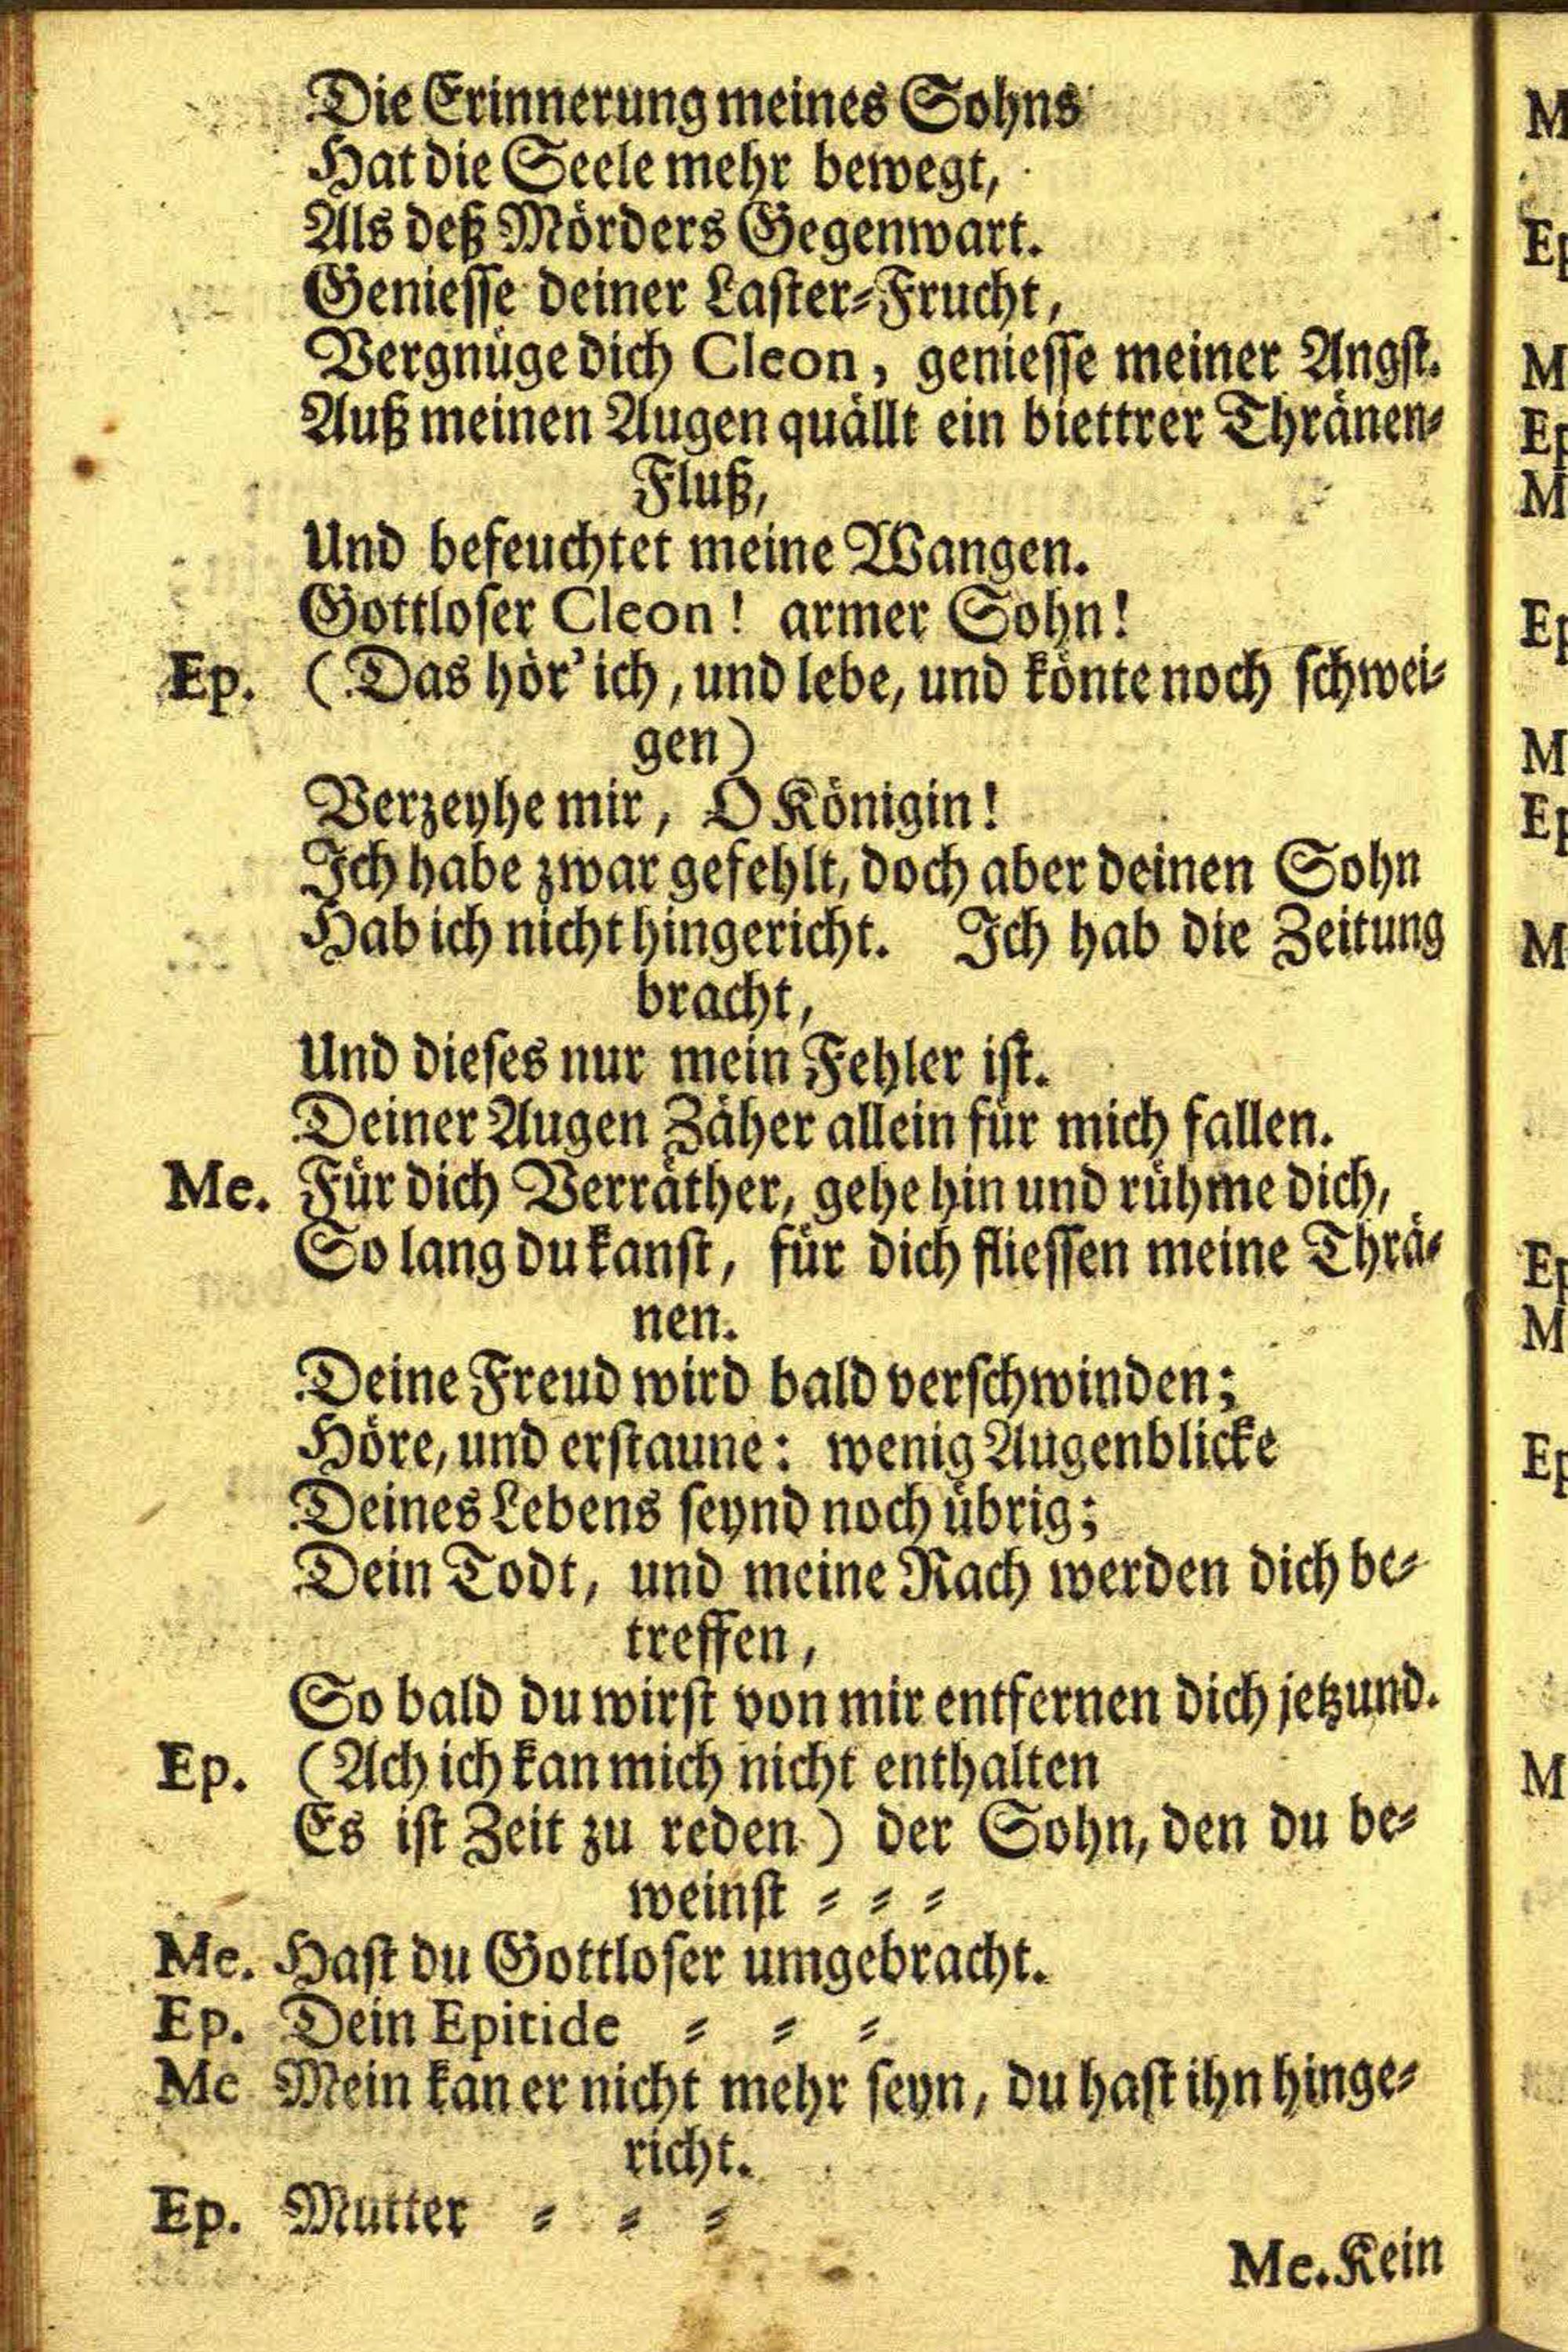 Die Erinnerung meines Sohns
Hat die Seele mehr bewegt,
Als deß Mörders Gegenwart.
Geniesse deiner Laster-Frucht,
Vergnüge dich Cleon, geniesse meiner Angst.
Auß meinen Augen quällt ein biettrer Thränen-
Fluß,
Und befeuchtet meine Wangen.
Gottloser Cleon! armer Sohn!
Ep. (Das hör' ich, und lebe, und könte noch schwei-
gen)
Verzeyhe mir, O Königin!
Ich habe zwar gefehlt, doch aber deinen Sohn
Hab ich nicht hingericht. Ich hab die Zeitung
bracht,
Und dieses nur mein Fehler ist.
Deiner Augen Zäher allein für mich fallen.
Me. Für dich Verräther, gehe hin und rühme dich,
So lang du kanst, für dich fliessen meine Thrä-
nen.
Deine Freud wird bald verschwinden;
Höre, und erstaune: wenig Augenblicke
Deines Lebens seynd noch übrig;
Dein Todt, und meine Rach werden dich be-
treffen,
So bald du wirst von mir entfernen dich jetzund.
Ep. (Ach ich kan mich nicht enthalten
Es ist Zeit zu reden) der Sohn, den du be-
weinst - - -
Me. Hast du Gottloser umgebracht.
Ep. Dein Epitide - - -
Me Mein kan er nicht mehr seyn, du hast ihn hinge-
richt.
Ep. Mutter - - -
Me. Kein
M
Ep
M
Ep
M
Ep
M
Ep
M
Ep
M
Ep
M